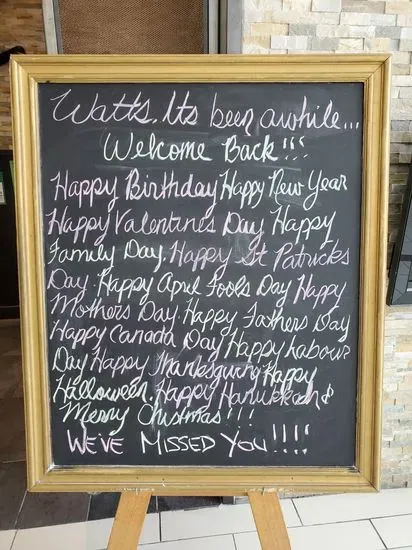 Watts, Its been awhile...
Welcome Back!!!
Happy Birthday Happy New Year
Happy Valentines Day. Happy
Family Day. Happy St Patricks
Day. Happy April Fools Day Happy
Mothers Day. Happy Fathers Day
Happy Canada Day Happy Labour
Day Happy Thanksgiving Happy
Halloween. Happy Hanukkah &
Merry Christmas!!!
WE'VE MISSED YOU!!!!